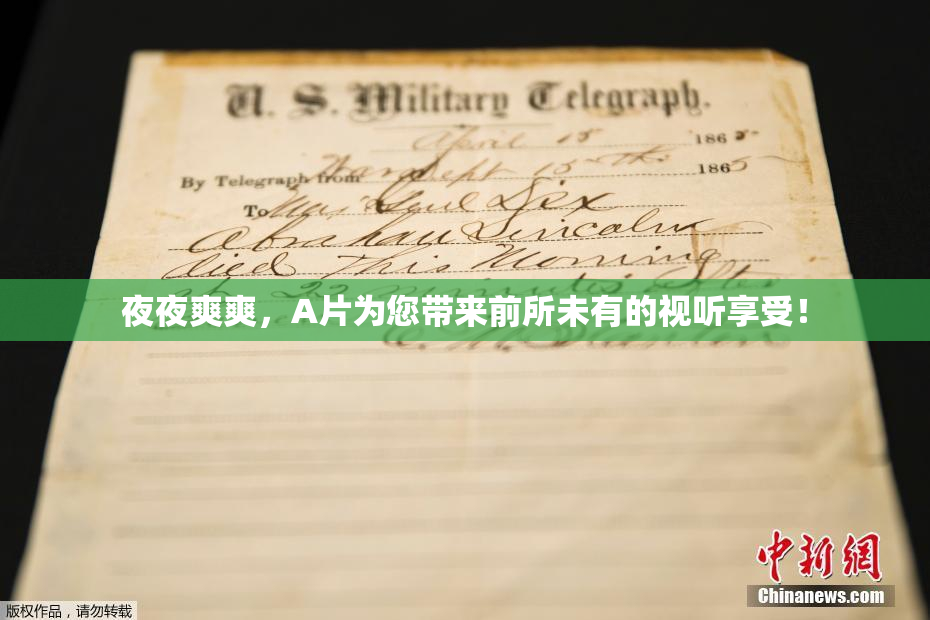 U. S. Military Telegraph.
April 15 1865
By Telegraph from War Dept 15th 1865
To Maj Genl Dix
Abraham Lincoln
died This Morning
at 22 minutes after
夜夜爽爽，A片为您带来前所未有的视听享受！
E. M. Stanton
中新网
Chinanews.com
版权作品，请勿转载